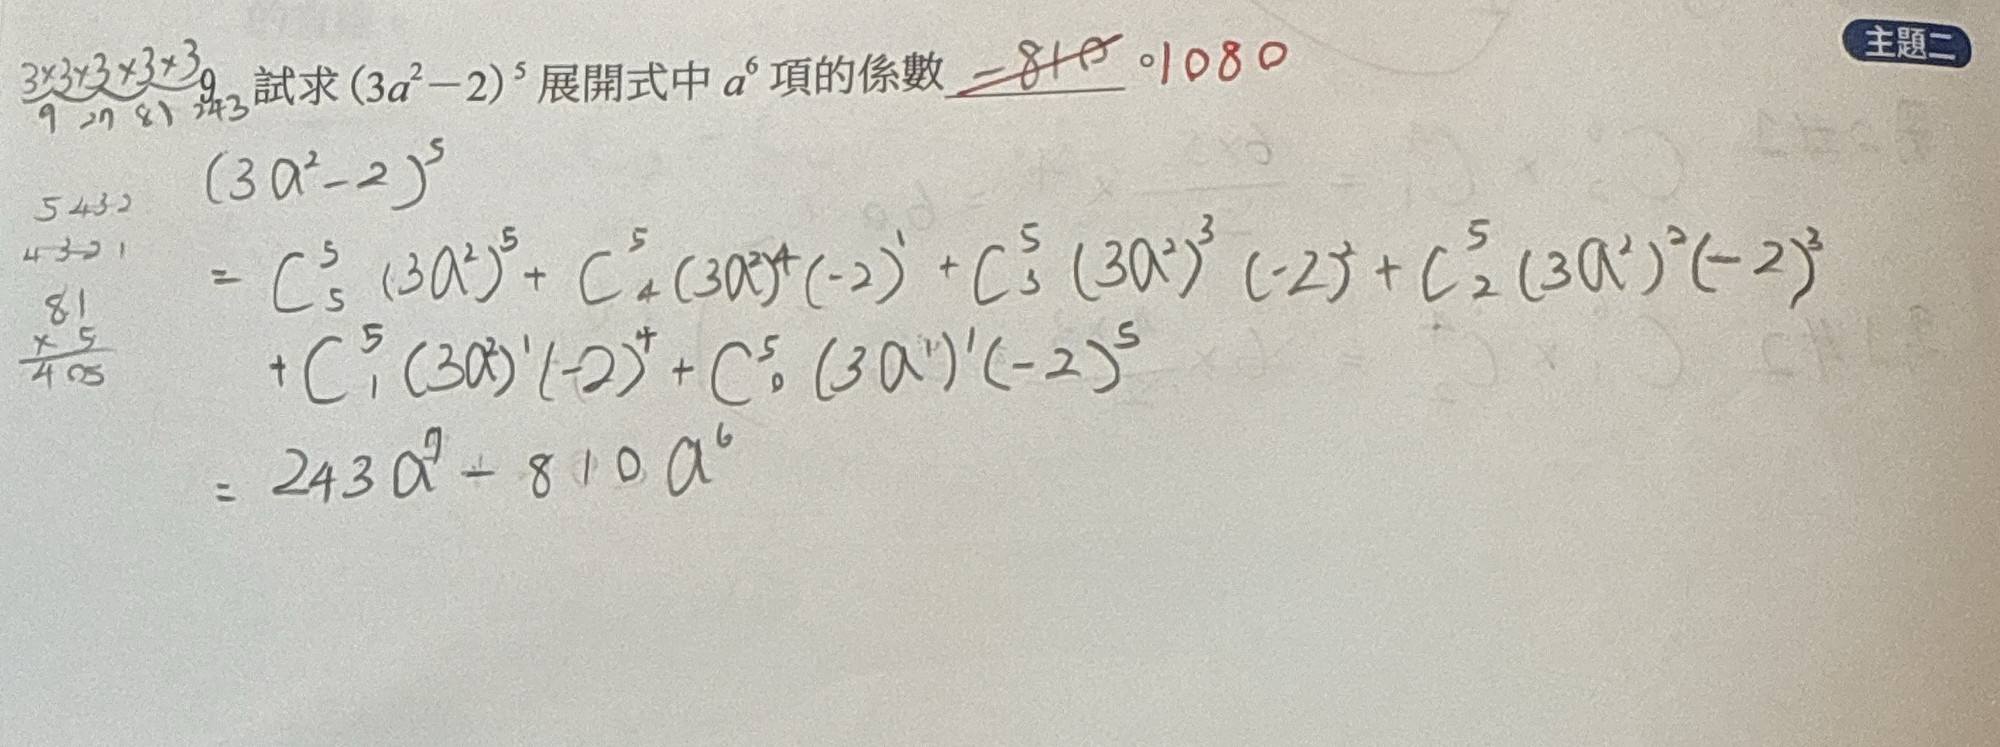 主題二
3×3×3×3×3
9 27 81 243
9. 試求 (3a²−2)⁵ 展開式中 a⁶ 項的係數 −810 。1080
(3a²−2)⁵
5 4 3 2
4 3 2 1
= C⁵₅ (3a²)⁵ + C⁵₄ (3a²)⁴ (−2)¹ + C⁵₃ (3a²)³ (−2)² + C⁵₂ (3a²)² (−2)³
81
× 5
405
+ C⁵₁ (3a²)¹ (−2)⁴ + C⁵₀ (3a¹)¹ (−2)⁵
= 243a⁷ − 810a⁶